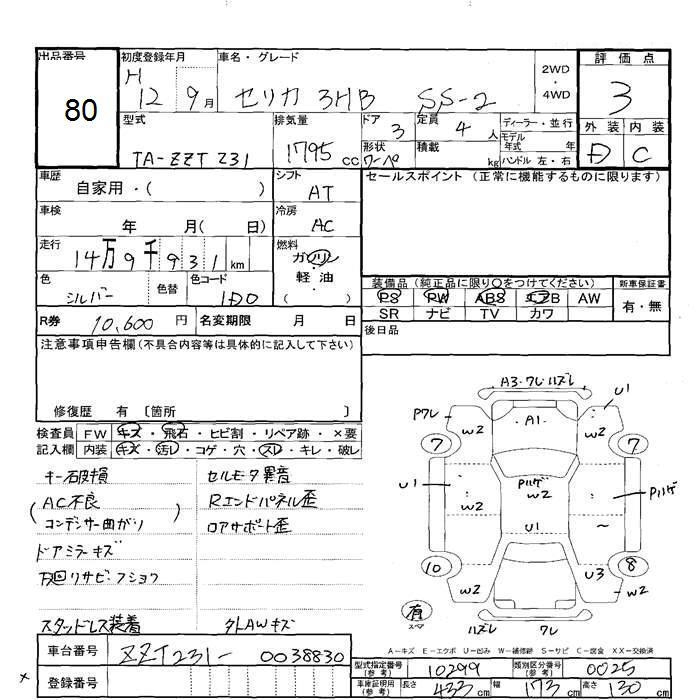 出品番号 初度登録年月 車名・グレード 2WD・4WD 評価点
80 H 12 9月 セリカ 3HB SS-2 3
型式 排気量 ドア 定員 ディーラー・並行 外装 内装
TA-ZZT231 1795cc 3 4人 モデル年式 年 D C
形状 積載 kg ハンドル 左・右
クーペ
車歴 自家用・( ) シフト AT セールスポイント (正常に機能するものに限ります)
車検 年 月( 日) 冷房 AC
走行 14万9千931km 燃料 ガソリン・軽油・( )
色 シルバー 色替 色コード 1D0
装備品 (純正品に限り○をつけてください) 新車保証書
PS PW ABS エアB AW 有・無
SR ナビ TV カワ
R券 10,600円 名変期限 月 日 後日品
注意事項申告欄(不具合内容等は具体的に記入して下さい)
修復歴 有 〔箇所 〕
検査員 FW キズ・飛石・ヒビ割・リペア跡・×要
記入欄 内装 キズ・汚レ・コゲ・穴・スレ・キレ・破レ
キー破損 セルモータ異音
AC不良 Rエンドパネル歪
(コンデンサー曲がり) ロアサポート歪
ドアミラーキズ
下回リサビ・フショク
スタッドレス装着 外LAWキズ
A3・ワレ・ハズレ
U1
Pワレ
W2 A1 W2
7 7
U1 Pハゲ
W2 W2 Pハゲ
U1 〜
10 8
W2 U3 W2
有 スペア
ハズレ ワレ
A−キズ E−エクボ U−凹み W−補修跡 S−サビ C−腐食 XX−交換済
車台番号 ZZT231-0038830 型式指定番号(参考) 10299 類別区分番号(参考) 0025
× 登録番号 車庫証明用(参考) 長さ 433cm 幅 173cm 高さ 130cm